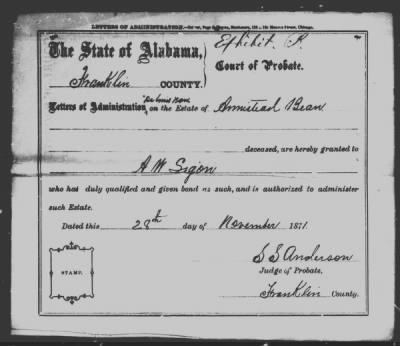 LETTERS OF ADMINISTRATION.
The State of Alabama,
Exhibit
Franklin COUNTY.
Court of Probate.
de bonis non
Letters of Administration on the Estate of Armistead Bean
deceased, are hereby granted to
A W Ligon
who has duly qualified and given bond as such, and is authorized to administer
such Estate.
Dated this 28th day of November 1871.
S S Anderson
Judge of Probate,
Franklin County.
STAMP.